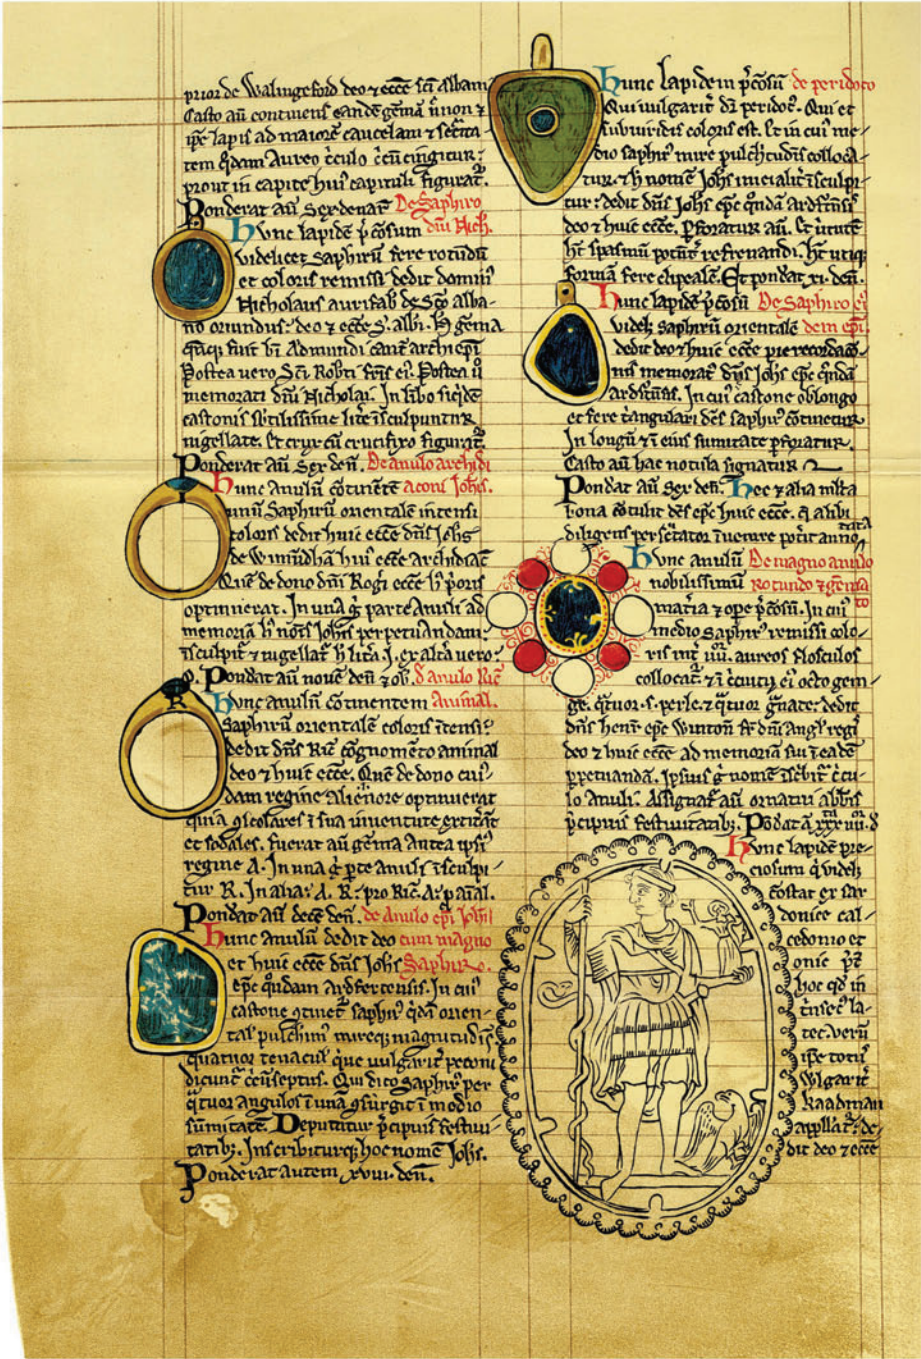 prior de Walingeford deo ⁊ ecc̄e sc̄i Albani
Casto aū continens eandē gēmā
ip̄e lapis ad maiorē cautelam ⁊
tem q̄dam Aureo c̄culo cingitur:
prout in capite hui' capituli figurat̄.
Ponderat aū sex denar̄ De Saphiro
Hunc lapidē p̄cōsum dn̄i Nich.
videlicet Saphirū fere rotūdū
et coloris remissi dedit domin'
Nicholaus aurifab̄ de Sc̄o alba-
no oriundus: deo ⁊ ecc̄e S. albi. gēma
fuit bī Admundi archiep̄i
Postea vero Sc̄i Rob̄ti fr̄is ei'. Postea ū
memorati dn̄i Nicholai. In
castonis sbtilissime sculpuntur
nigellate. Et crux cū crucifixo figurat̄.
Ponderat aū Sex den̄. De anulo archidi
Hunc Anulū cōtinētē aconi Joh̄is.
unū Saphirū orientalē intensi
coloris dedit huic ecc̄e dn̄s Joh̄s
de hui' ecc̄e archidiac̄
Quē de dono dn̄i Roḡi ecc̄e h' p̄oris
optinuerat. In una g̊ parte Anuli ad
memoriā h' nōis Joh̄is perpetuandam:
īsculpit̄ ⁊ nigellat̄ h' lit̄a. J. ex alt̄a vero:
O. Pondat aū novē den̄ ⁊ ob̄. d̄ anulo Ric̄
Hunc anulū cōtinentem Animal.
Saphirū orientalē coloris ītensi:
dedit dn̄s Ric̄ cōgnomēto animal
deo ⁊ huic ecc̄e. Quē de dono cui'-
dam regine Alienore optinuerat
quia 9scolares ī sua iuventute
et sodales. fuerat aū gēma antea ip̄si'
regine A. In una g̊ p̄te anuli īsculpi-
tur R. In alia: A. R. pro Ric̄. A: p̄ aīal.
Pondat aū decē den̄. de Anulo ep̄i Joh̄is
Hunc anulū dedit deo cum magno
et huic ecc̄e dn̄s Joh̄s Saphiro.
ep̄c q̄ndam ardfertensis. In cui'
castone 9tinet̄ saphir' q̄dā orien-
tal' pulchim' mireq; magnitudīs
quatuor tenacul' que vulgarit̄
dicunt̄ Qui d̄co Saphir' per
q̄tuor angulos ī unā 9surgit ī modio
sūmitatē. Deputatur p̄cipuis festivi-
tatib;. Inscribiturq; hoc nomē Joh̄s.
Ponderat autem, xviii. den̄.
R
Hunc lapidem p̄cōsū de peridoto
Qui vulgarit̄ dr̄ peridot'. Qui et
subviridis coloris est. Et in cui' me-
dio saphir' mire pulch̄tudīs colloca-
tur. ⁊ h' nomē Joh̄s inicialit̄ īsculpi-
tur: dedit dn̄s Joh̄s ep̄c q̄ndā ardf̄tēsis
deo ⁊ huic ecc̄e. P̄foratur aū. Et v̄tutē
h̄t spasmū potent̄ refrenandi. h̄t
formā fere clipealē. Et pondat xi. den̄.
Hunc lapidē p̄cōsū De Saphiro ei'
videl; saphirū orientalē dem ep̄i.
dedit deo ⁊ huic ecc̄e pie recordacō-
nis memorat' dn̄s Joh̄s ep̄c q̄ndā
ardf̄tēsis. In cui' castone oblongo
et fere t̄angulari dc̄s saphir' cōtinetur
In longū ⁊ ī eius sumitate p̄foratur.
Casto aū hac notula signatur
Pondat aū Sex den̄. Hec ⁊ alia m̄lta
bona cōtulit dc̄s ep̄c huic ecc̄e. q̄ alibi
diligens perscrutator īvenire pot̄it
Hunc anulū De magno anulo
nobilissimū rotundo ⁊ gēma
mat̄ia ⁊ ope p̄cōsū. In cui' to
medio saphir' remissi colo-
ris int̄ iiii. aureos flosculos
collocat̄ ⁊ ī c̄cuitu ei' octo gem-
me. q̄tuor .s. perle. ⁊ q̄tuor g̊nate: dedit
dn̄s henr̄ ep̄c Wintoń fr̄ dn̄i Angl' regi'
deo ⁊ huic ecc̄e ad memoriā sui ī eadē
p̄petuandā. Ipsius g̊ nomē īscbit̄ c̄cu-
lo Anuli. Assignat̄ aū ornatui abb̄is
p̄cipuis festivitatib;. Pōdat ā
Hunc lapidē pre-
ciosum q̄ videl;
cōstat ex sar-
donice cal-
cedonio et
onic
hoc qd̄ in
t̄nsec' la-
tet. verū
ip̄e tot'
vlgarit̄
kaadman
appllat̄: de-
dit deo ⁊ ecc̄e